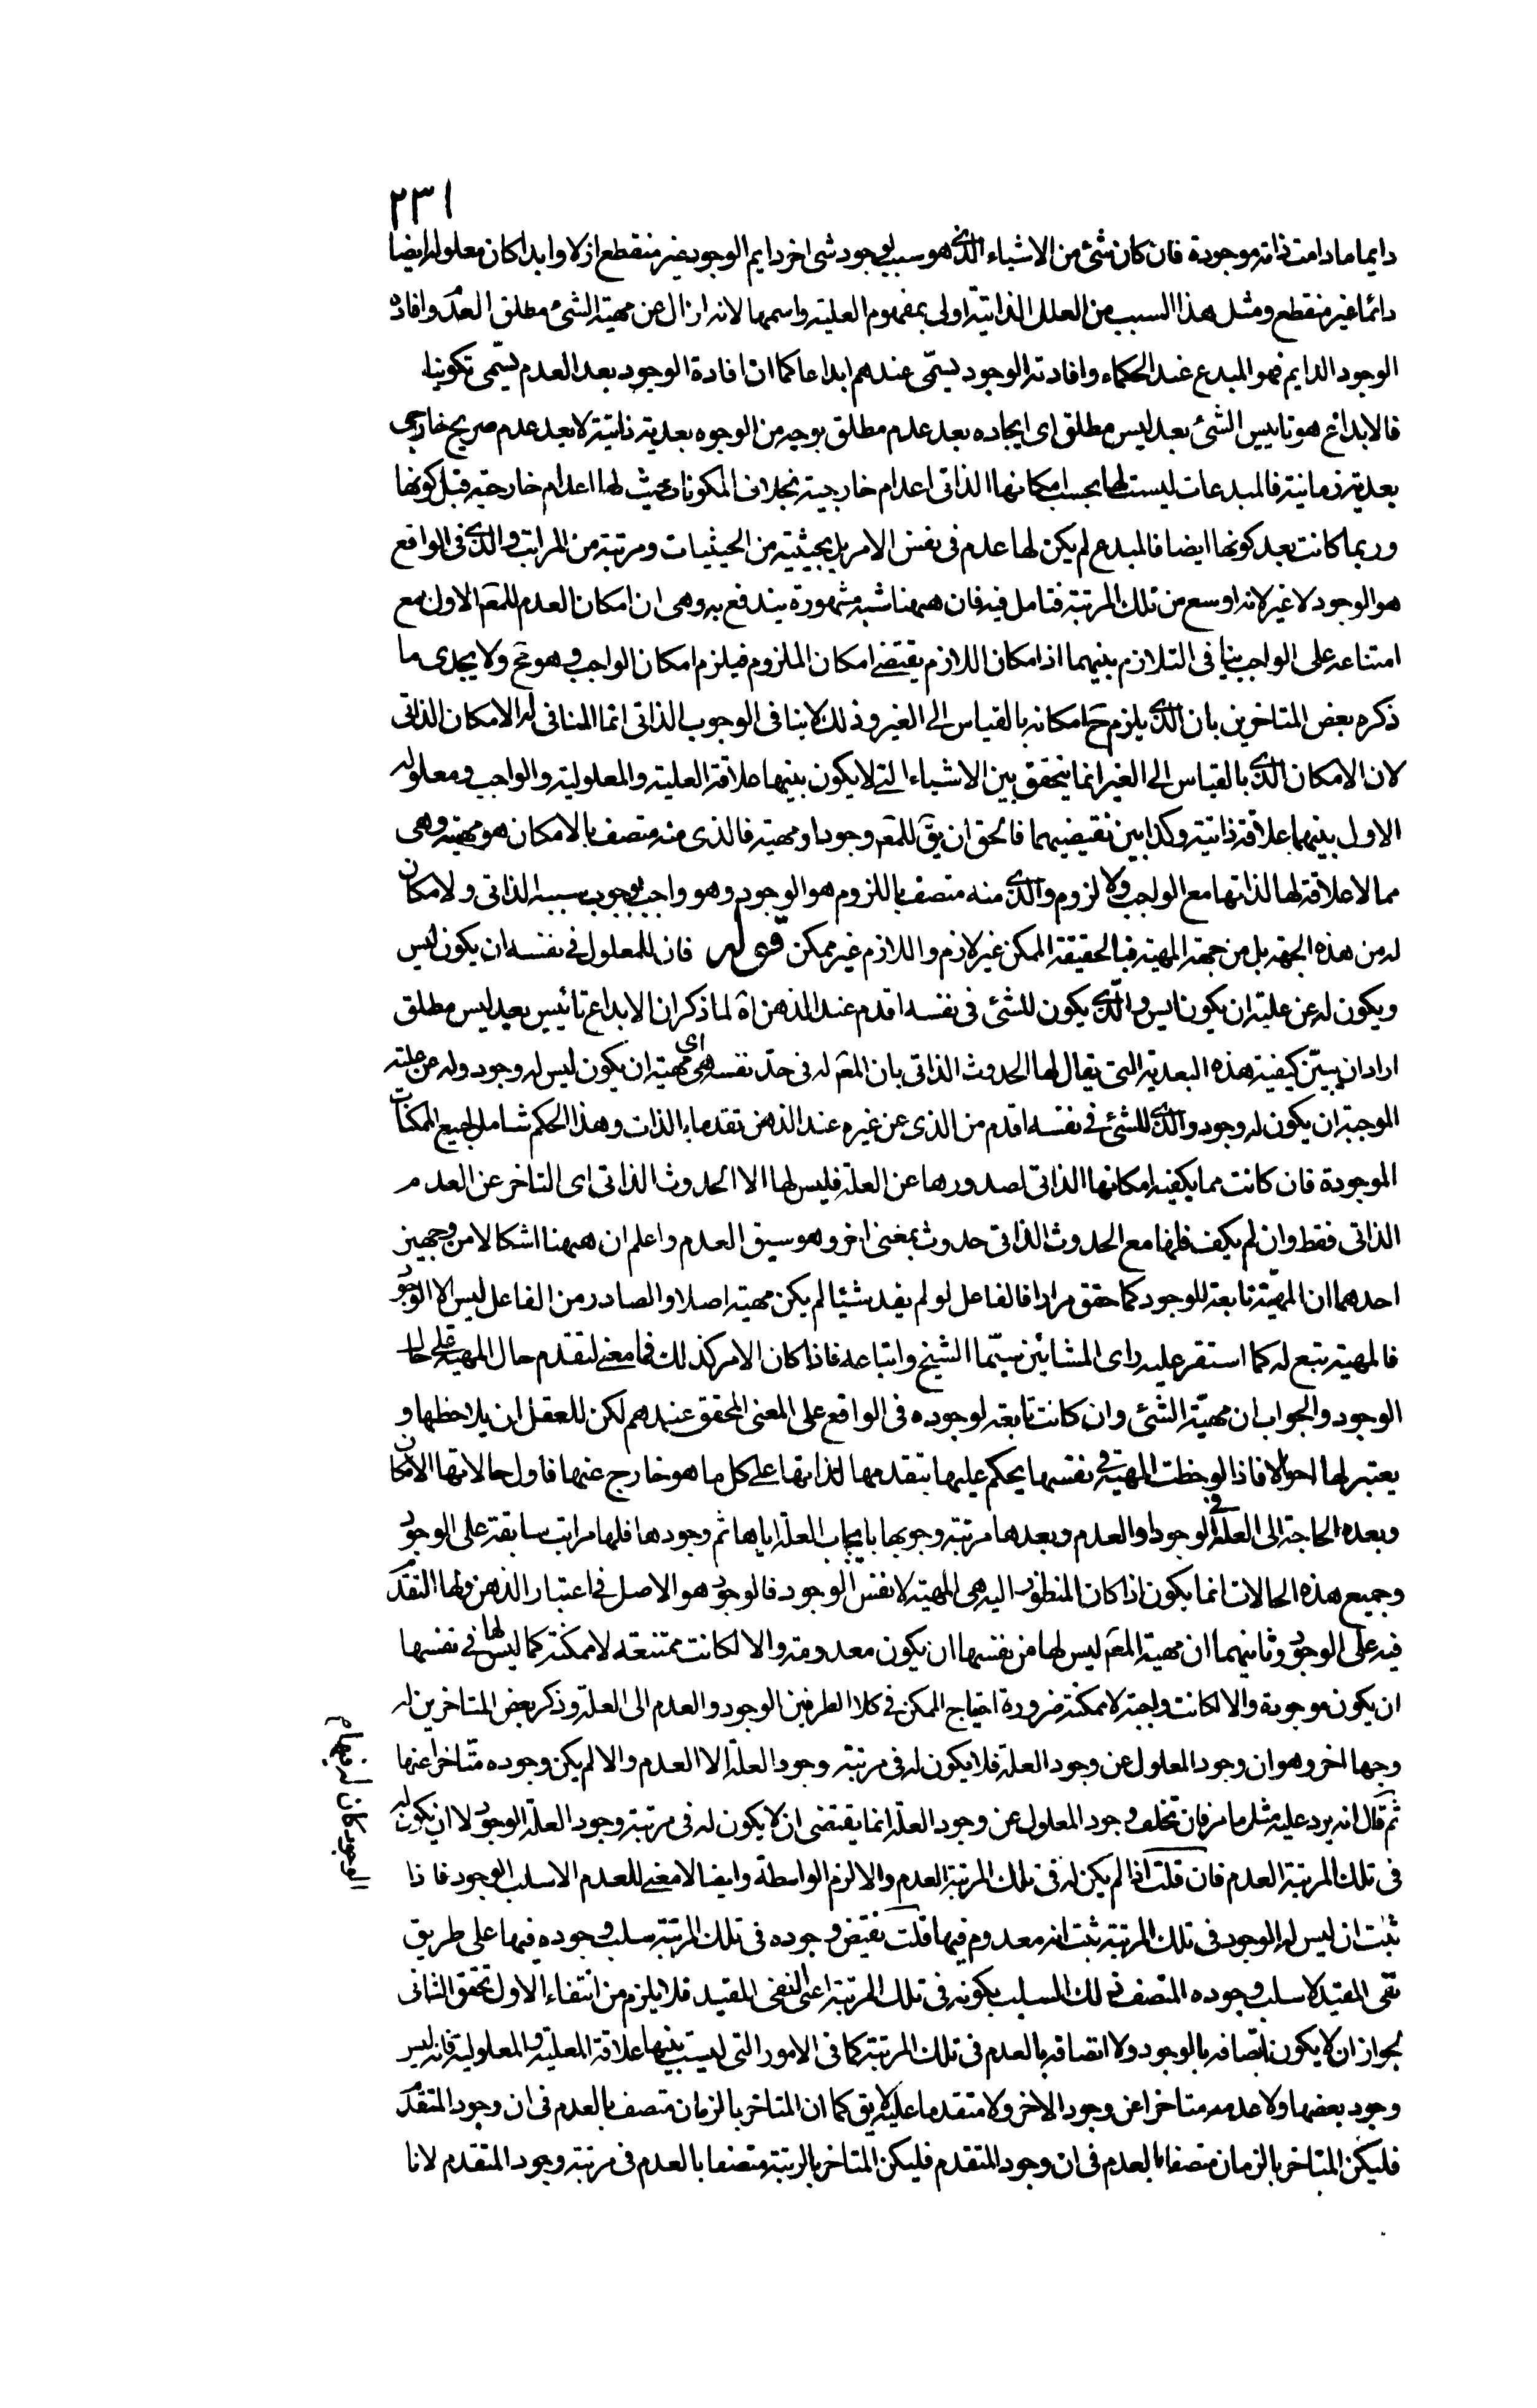 ٢٣١
دايما مادامت ذاته موجودة فان كان شئ من الاشياء الذى هو سبب لوجود شى اخر دايم الوجود غير منقطع ازلا وابدا كان معلوله ايضا
دائما غير منقطع ومثل هذا السبب من العلل الذاتية اولى بمفهوم العلية واسمها لانه ازال عن مهية الشئ مطلق العدم وافاده
الوجود الدايم فهو المبدع عند الحكماء وافادته الوجود يسمّى عندهم ابداعا كما ان افادة الوجود بعد العدم يسّمى تكوينا
فالابداع هو تاييس الشئ بعد ليس مطلق اى ايجاده بعد عدم مطلق بوجه من الوجوه بعدية ذاتية لا بعد عدم صريح خارجى
بعدية زمانية فالمبدعات ليست لها بحسب امكانها الذاتى اعدام خارجية بخلاف المكونات حيث لها اعدام خارجية قبل كونها
وربما كانت بعد كونها ايضا فالمبدع لم يكن لها عدم فى نفس الامر بل بحيثية من الحيثيات ومرتبة من المراتب والذى فى الواقع
هو الوجود لا غير لانه اوسع من تلك المرتبة فتامل فيه فان ههنا شبهة مشهورة يندفع به وهى ان امكان العدم للمعم الاول مع
امتناعه على الواجب ينافى التلازم بينهما اذ امكان اللازم يقتضى امكان الملزوم فيلزم امكان الواجب وهو مح ولا يجدى ما
ذكره بعض المتاخرين بان الذى يلزم ح امكانه بالقياس الى الغير وذلك لا ينافى الوجوب الذاتى انما المنافى له الامكان الذاتى
لان الامكان الذى بالقياس الى الغير انما يتحقق بين الاشياء التى لا يكون بينهما علاقة العلية والمعلولية والواجب ومعلوله
الاول بينهما علاقة ذاتية وكذا بين نقيضيهما فالحق ان يق للمعم وجودا ومهية فالذى منه متصف بالامكان هو مهيته وهى
مما لا علاقة لها لذاتها مع الواجب ولا لزوم والذى منه متصف باللزوم هو الوجود وهو واجب بوجوب سببه الذاتى ولا امكان
له من هذه الجهة بل من جهة المهية فبالحقيقة الممكن غير لازم واللازم غير ممكن قوله فان للمعلول فى نفسه ان يكون ليس
ويكون له عن علية ان يكون ايس والذى يكون للشئ فى نفسه اقدم عند الذهن اه لما ذكر ان الابداع تائيس بعد ليس مطلق
اراد ان يبيّن كيفية هذه البعدية التى يقال لها الحدوث الذاتى بان المعم له فى حدّ نفسه اى مهيته ان يكون ليس له وجود وله عن علته
الموجبة ان يكون له وجود والذى للشئ فى نفسه اقدم من الذى عن غيره عند الذهن تقدما بالذات وهذا الحكم شامل لجميع الممكنات
الموجودة فان كانت مما يكفيه امكانها الذاتى لصدورها عن العلة فليس لها الا الحدوث الذاتى اى التاخر عن العدم
الذاتى فقط وان لم يكف فلها مع الحدوث الذاتى حدوث بمعنى اخر وهو سبق العدم واعلم ان ههنا اشكالا من وجهين
احدهما ان المهيّة تابعة للوجود كما حقق مرارا فالفاعل لو لم يفد شيئا لم يكن مهية اصلا والصادر من الفاعل ليس الا الوجود
فالمهية يتبع له كما استقر عليه راى المشائين سيّما الشيخ واتباعه فاذا كان الامر كذلك فما معنى لتقدم حال المهية على حال
الوجود والجواب ان مهيّة الشئ وان كانت تابعة لوجوده فى الواقع على المعنى المحقق عندهم لكن للعقل ان يلاحظها و
يعتبر لها احوالا فاذا لوحظت المهية فى نفسها يحكم عليها بتقدمها لذاتها على كل ما هو خارج عنها فاول حالاتها الامكان
وبعده الحاجة الى العلة فى الوجود او العدم وبعدها مرتبة وجوبها بايجاب العلة اياها ثم وجودها فلها مراتب سابقة على الوجود
وجميع هذه الحالات انما يكون اذا كان المنظور اليه هى المهية لا نفس الوجود فالوجود هو الاصل فى اعتبار الذهن ولها التقدم
فيه على الوجود وثانيهما ان مهية المعم ليس لها من نفسها ان يكون معدومة والا لكانت ممتنعة لا ممكنة كما ليس لها فى نفسها
ان يكون موجودة والا لكانت واجبة لا ممكنة ضرورة احتياج الممكن فى كلا الطرفين الوجود والعدم الى العلة وذكر بعض المتاخرين له
وجها اخر وهو ان وجود المعلول عن وجود العلة فلا يكون له فى مرتبة وجود العلة الا العدم والا لم يكن وجوده متاخرا عنها
ثم قال انه يرد عليه مثل ما مر فان تخلف وجود المعلول عن وجود العلة انما يقتضى ان لا يكون له فى مرتبة وجود العلة الوجود لا ان يكون له
فى تلك المرتبة العدم فان قلت اذا لم يكن له فى تلك المرتبة العدم والا لزم الواسطة وايضا لا معنى للعدم الا سلب الوجود فاذا
ثبت ان ليس له الوجود فى تلك المرتبة ثبت انه معدوم فيها قلت نقيض وجوده فى تلك المرتبة سلب وجوده فيها على طريق
نفى المقيد لا سلب وجوده المتصف ذلك السلب بكونه فى تلك المرتبة اعنى النفى المقيد فلا يلزم من انتفاء الاول تحقق الثانى
لجواز ان لا يكون اتصافه بالوجود ولا اتصافه بالعدم فى تلك المرتبة كما فى الامور التى ليست بينها علاقة العلية والمعلولية فانه ليس
وجود بعضها ولا عدمه متاخرا عن وجود الاخر ولا متقدما عليه لا يق كما ان المتاخر بالزمان متصف بالعدم فى ان وجود المتقدم
فليكن المتاخر بالزمان متصفا بالعدم فى ان وجود المتقدم فليكن المتاخر بالرتبة متصفا بالعدم فى مرتبة وجود المتقدم لانا
الوجود كان له فيها م